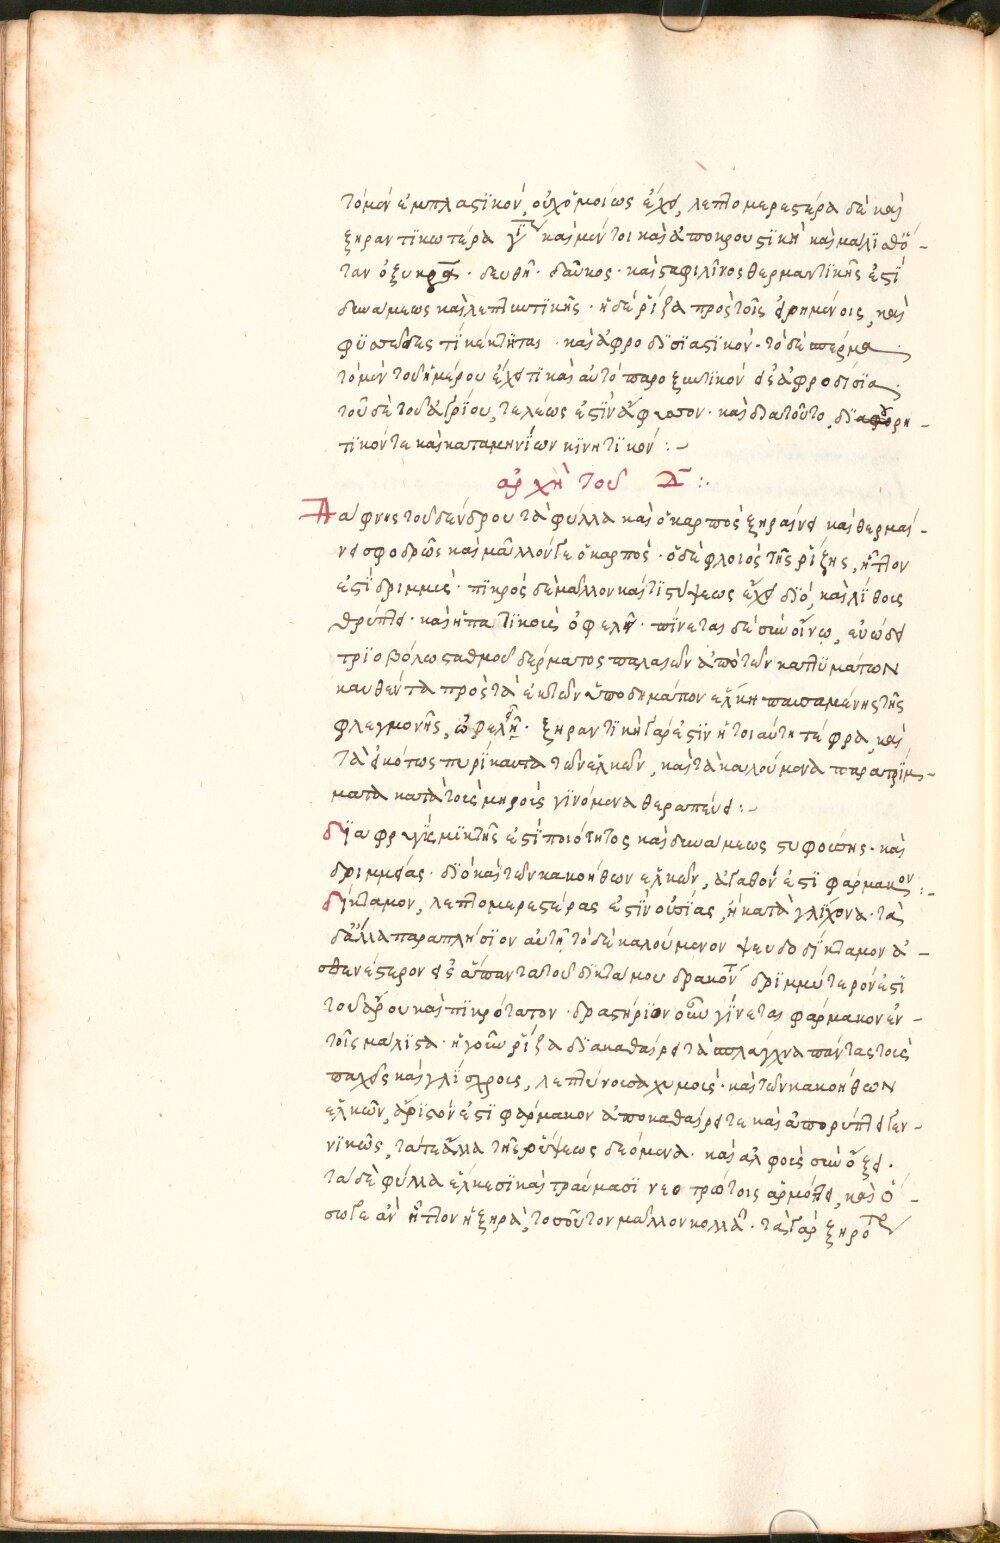 τὸ μὲν ἐμπλαστϊκὸν, οὐχ ὁμοίως ἔχει, λεπτομερεστέρα δὲ καὶ
ξηραντϊκωτέρα γίνεται καὶ μέντοι καὶ ἀποκρουστϊκὴ καὶ μάλϊσθ ὅ-
ταν ὀξυκρα · δευθῆ · δαῦκος · καὶ σταφιλῖνος θερμαντϊκῆς ἐστϊ
δυνάμεως καὶ λεπτυντϊκῆς · ἡ δὲ ῥίζα πρὸς τοῖς εἰρημένοις, καὶ
φϋσῶδες τϊ κέκτηται · καὶ ἀφροδϊσϊαστϊκὸν · τὸ δὲ σπέρμα
τὸ μὲν τοῦ ἡμέρου ἔχει τι καὶ αὐτὸ παροξυντϊκὸν εἰς ἀφροδίσϊα ·
τοῦ δὲ τοῦ ἀγρίου, τελέως ἐστϊν ἄφυσον · καὶ διατοῦτο, δϊαφορη-
τϊκόν τε καὶ καταμηνΐων κϊνητϊκόν : -
ἀρχὴ τοῦ Δ :·
Δάφνης τοῦ δένδρου τὰ φύλλα καὶ ὁ καρπὸς ξηραίνει καὶ θερμαί-
νει σφοδρῶς καὶ μᾶλλόν γε ὁ καρπὸς · ὁ δὲ φλοιὸς τῆς ῥίζης, ἧττον
ἐστϊ δριμμὺς · πϊκρὸς δὲ μᾶλλον καί τϊ στύψεως ἔχει δϊὸ, καὶ λίθοις
θρύπτει · καὶ ἡπατϊκοὺς ὀφελεῖ · πίνεται δὲ σὺν οἴνῳ, εὐώδει
τρϊοβόλω σταθμοῦ δέρματος παλαιῶν ἀπὸ τῶν κατϋμάτων
καυθέντα πρὸς τὰ ἐκ τῶν ὑποδημάτων ἕλκη παυσαμένης τῆς
φλεγμονῆς, ὠφελεῖ · ξηραντϊκὴ γάρ ἐστϊν ἡ τοιαύτη τέφρα, καὶ
τὰ εἰκότως πυρίκαυτα τῶν ἑλκῶν, καὶ τὰ καλούμενα παρατρίμ-
ματα κατὰ τοὺς μηροὺς γϊνόμενα θεραπεύει : -
δϊαφρυγὲς μϊκτῆς ἐστϊ ποιότητος καὶ δυνάμεως στυφούσης · καὶ
δριμμείας · δϊὸ καὶ τῶν κακοήθων ἑλκῶν, ἀγαθόν ἐστϊ φάρμακον : -
δίκταμον, λεπτομερεστέρας ἐστϊν οὐσίας, ἢ κατὰ γλίχονα · τὰ
δἄλλα παραπλήσϊον αὐτῆ τὸ δὲ καλούμενον ψευδοδίκταμον ἀ-
σθενέστερον εἰς ἅπαντα τοῦ δϊκτάμου δρακόντ δρϊμμύτερόν ἐστϊ
τοῦ ἄρου καὶ πϊκρότατον · δραστήριον οὖν γίνεται φάρμακον ἐν
τοῖς μάλϊστα · ἡ γοῦν ῥίζα δϊακαθαίρει τὰ σπλάγχνα πάντας τοὺς
παχεῖς καὶ γλϊσχροις, λεπτύνουσα χυμοὺς · καὶ τῶν κακοήθων
ἑλκῶν, ἄρϊστόν ἐστϊ φάρμακον ἀποκαθαίρει τε καὶ ἀπορύπτει γεν-
νϊκῶς, τά τε ἄλλα τῆς ῥύψεως δεόμενα · καὶ ἀλφοὺς σὺν ὄξει ·
τὰ δὲ φύλλα ἕλκεσϊ καὶ τραύμασϊ νεοτρώτοις ἁρμόττει, καὶ ὅ-
σω γε ἂν ἧττον ἦ ξηρὰ, τοσοῦτον μᾶλλον κολλᾶ · τὰ γὰρ ξηρό